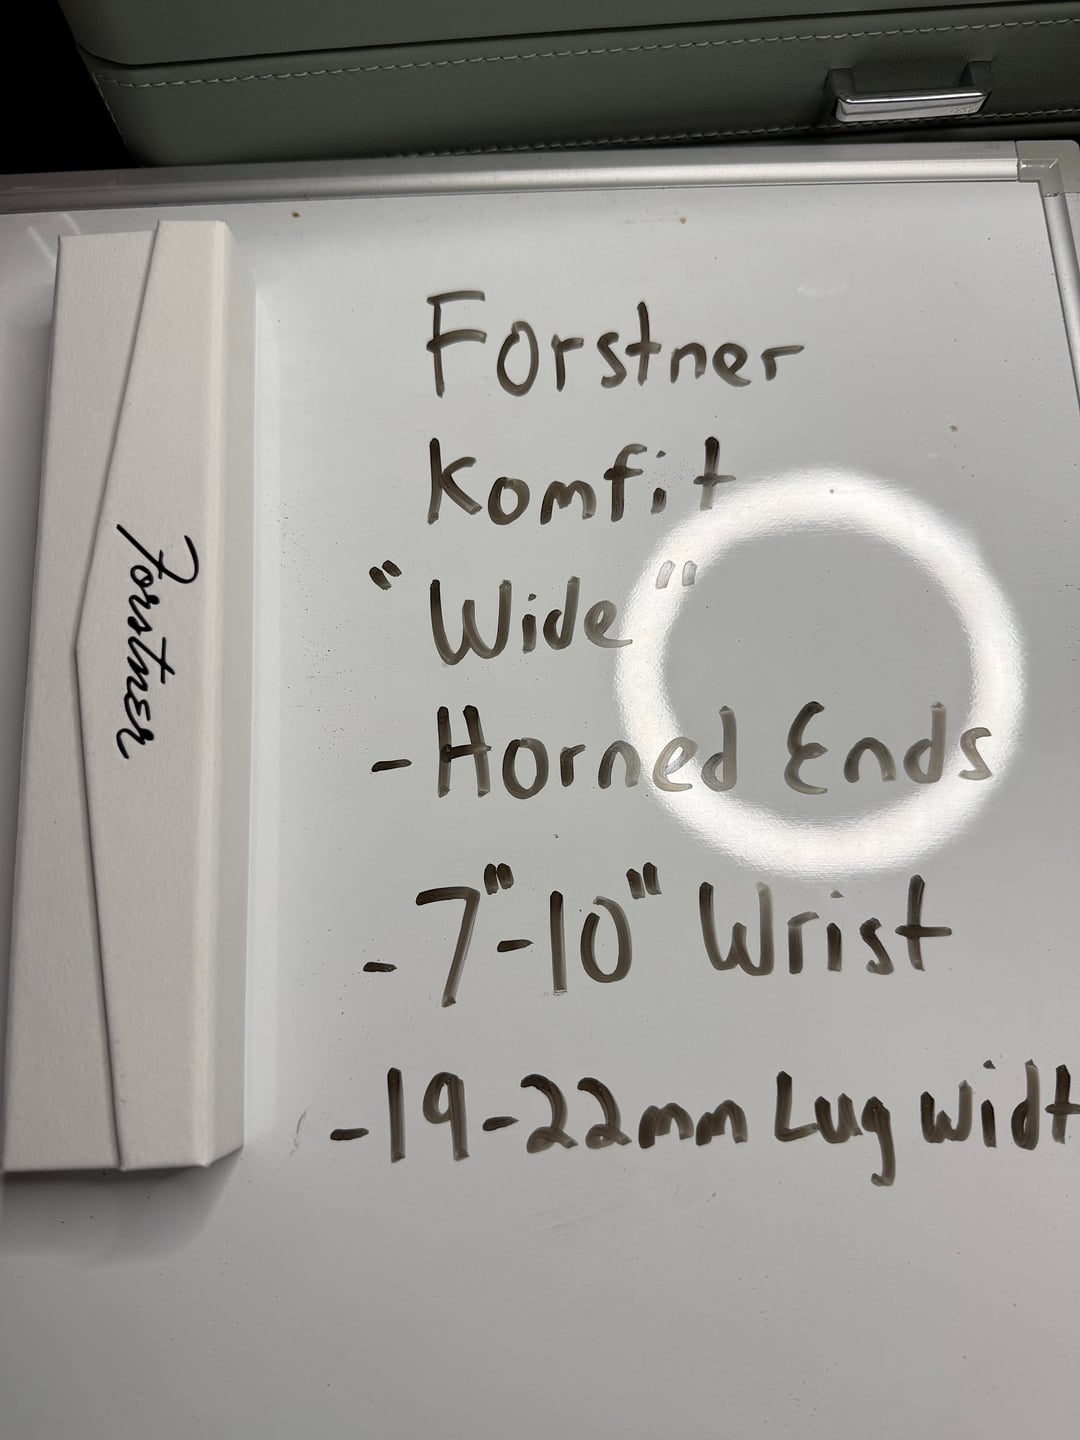 Forstner
Forstner
Komfit
"Wide"
- Horned Ends
- 7"-10" Wrist
- 19-22mm Lug Widt